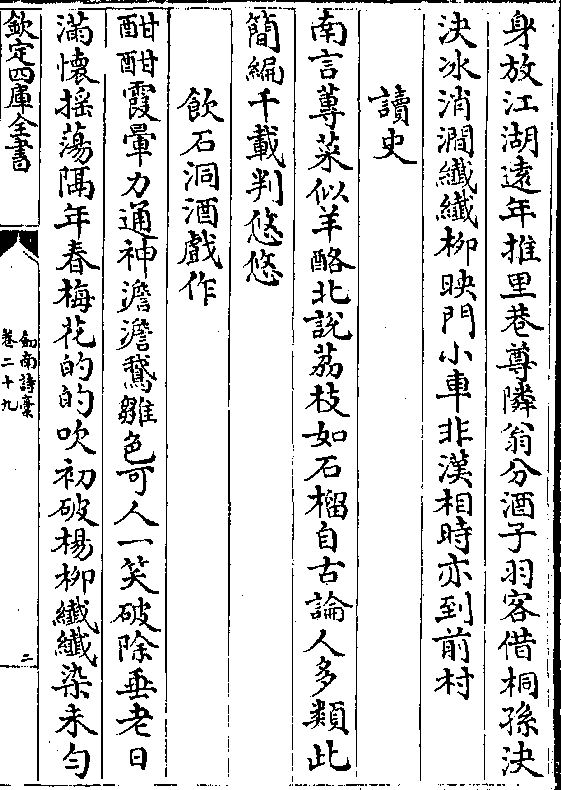 身放江湖遠年推里巷尊隣翁分酒子羽客借桐孫決
決冰消澗纖纖柳映門小車非漢相時亦到前村
讀史
南言蓴菜似羊酪北說荔枝如石榴自古論人多類此
簡編千載判悠悠
飲石洞酒戲作
酣酣霞暈力通神澹澹鵝雛色可人一笑破除垂老日
滿懷揺蕩隔年春梅花的的吹初破楊柳纖纖染未勻
欽定四庫全書
劍南詩稾
卷二十九
二